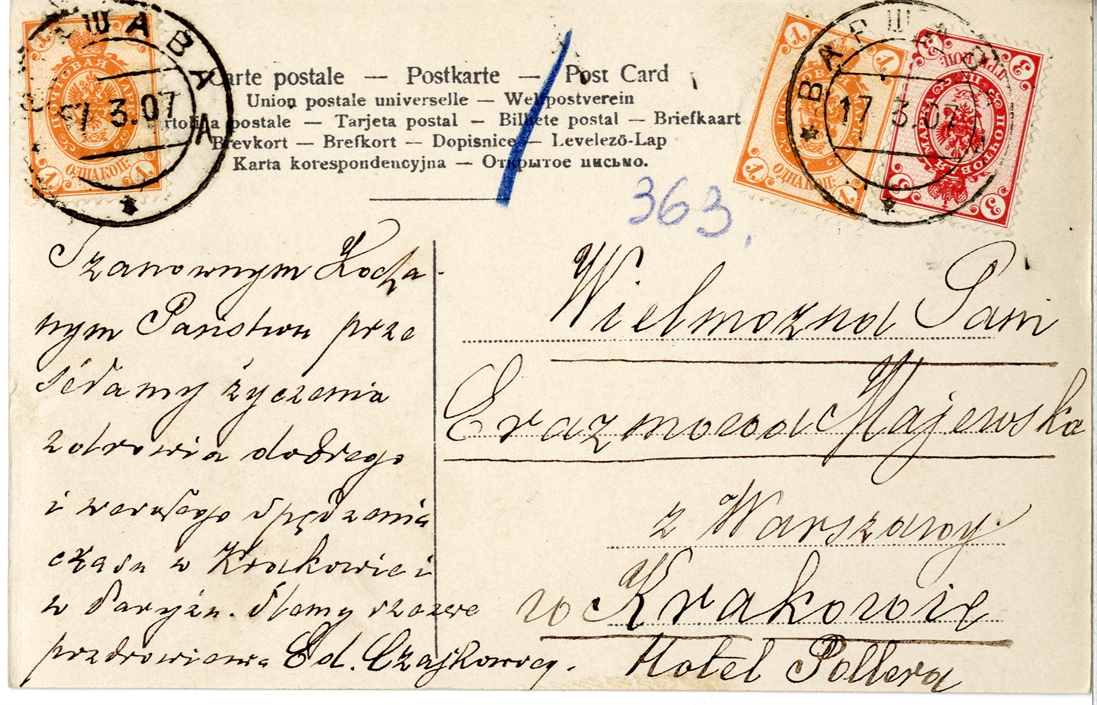 Carte postale — Postkarte — Post Card
Union postale universelle — Weltpostverein
Cartolina postale — Tarjeta postal — Bilhete postal — Briefkaart
Brevkort — Brefkort — Dopisnice — Levelező-Lap
Karta korespondencyjna — Открытое письмо.
ВАРШАВА
17 3.07
ВАРШАВА
17 3.07
ПОЧТОВАЯ МАРКА
ОДНАКОП.
1
ПОЧТОВАЯ МАРКА
ОДНАКОП.
1
ПОЧТОВ. МАРКА
ТРИ КОП.
3
363.
Szanownym Kocha-
nym Państwu prze
séłamy życzenia
zdrowia dobrego
i wesołego spędzenia
czasu w Krakowie i
w Paryżu. Ślemy
pozdrowienia Ed. Czajkowscy.
Wielmożna Pani
Erazmowa Majewska
z Warszawy
w Krakowie
Hotel Pollera